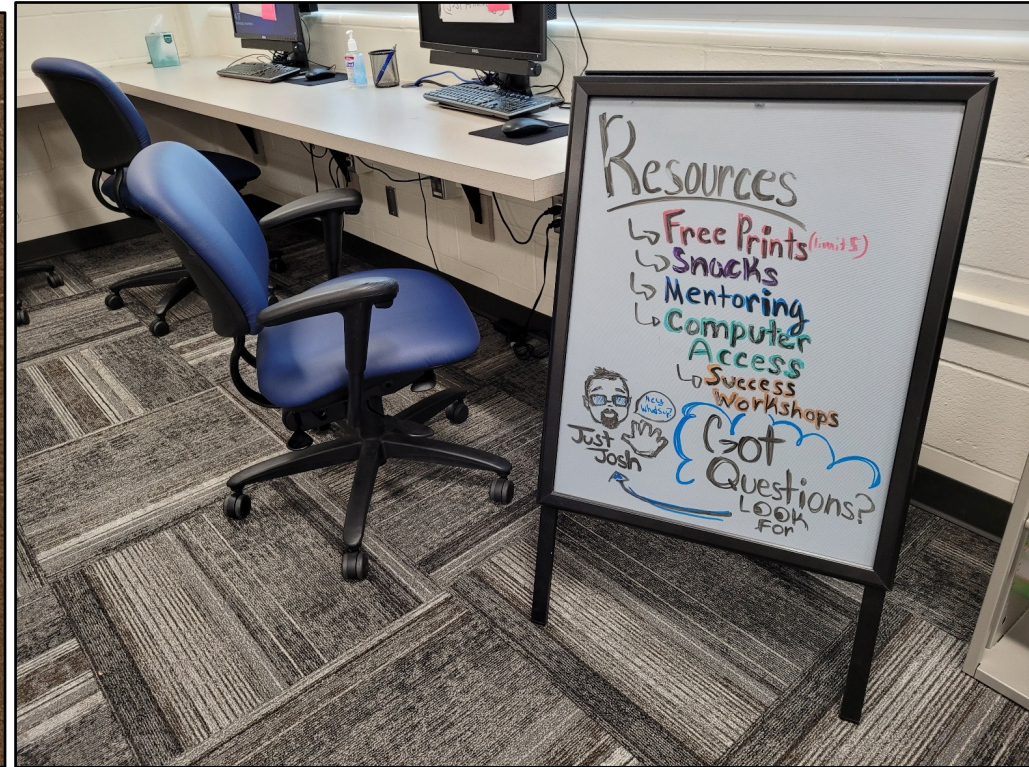 Resources
Free Prints (limit 5)
Snacks
Mentoring
Computer
Access
Success
Workshops
Hey
Whatsup?
Just
Josh
Got
Questions?
LOOK
FOR